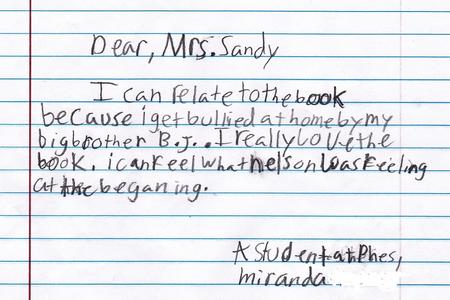 Dear, Mrs. Sandy
I can relate to the book
because i get bullied at home by my
big brother B.J.. I really love the
book. i can feel what nelson was feeling
at the beganing.
A student at Phes,
miranda